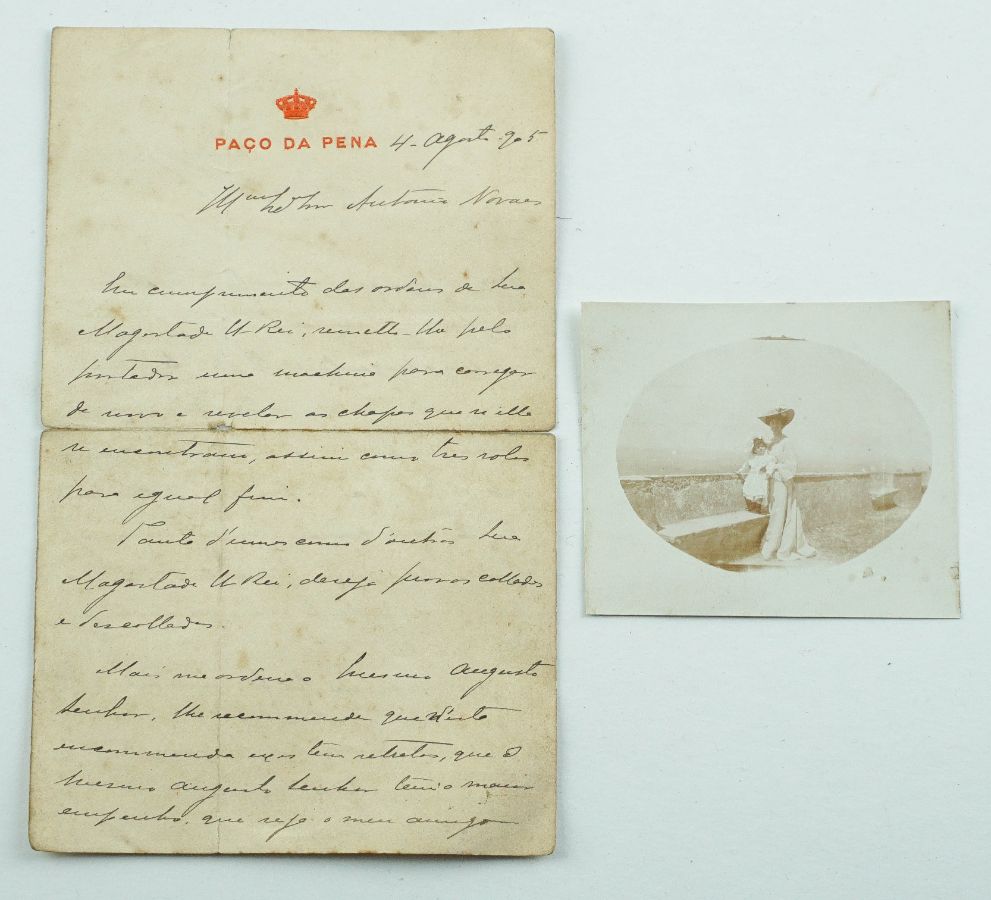 PAÇO DA PENA 4-Agosto-905
Antonio Novaes
Em cumprimento das ordens de Sua
Magestade El-Rei, remetto-lhe pelo
portador uma machina para carregar
de novo e revelar as chapas que n'ella
se encontram, assim como tres rolos
para egual fim.
Tanto d'umas como d'outros Sua
Magestade El-Rei, deseja provas colladas
e descolladas.
Mais me ordena o mesmo Augusto
Senhor, lhe recommende que n'esta
encommenda vão tem retratos, que o
mesmo augusto Senhor tem o maior
empenho, que seja o meu amigo